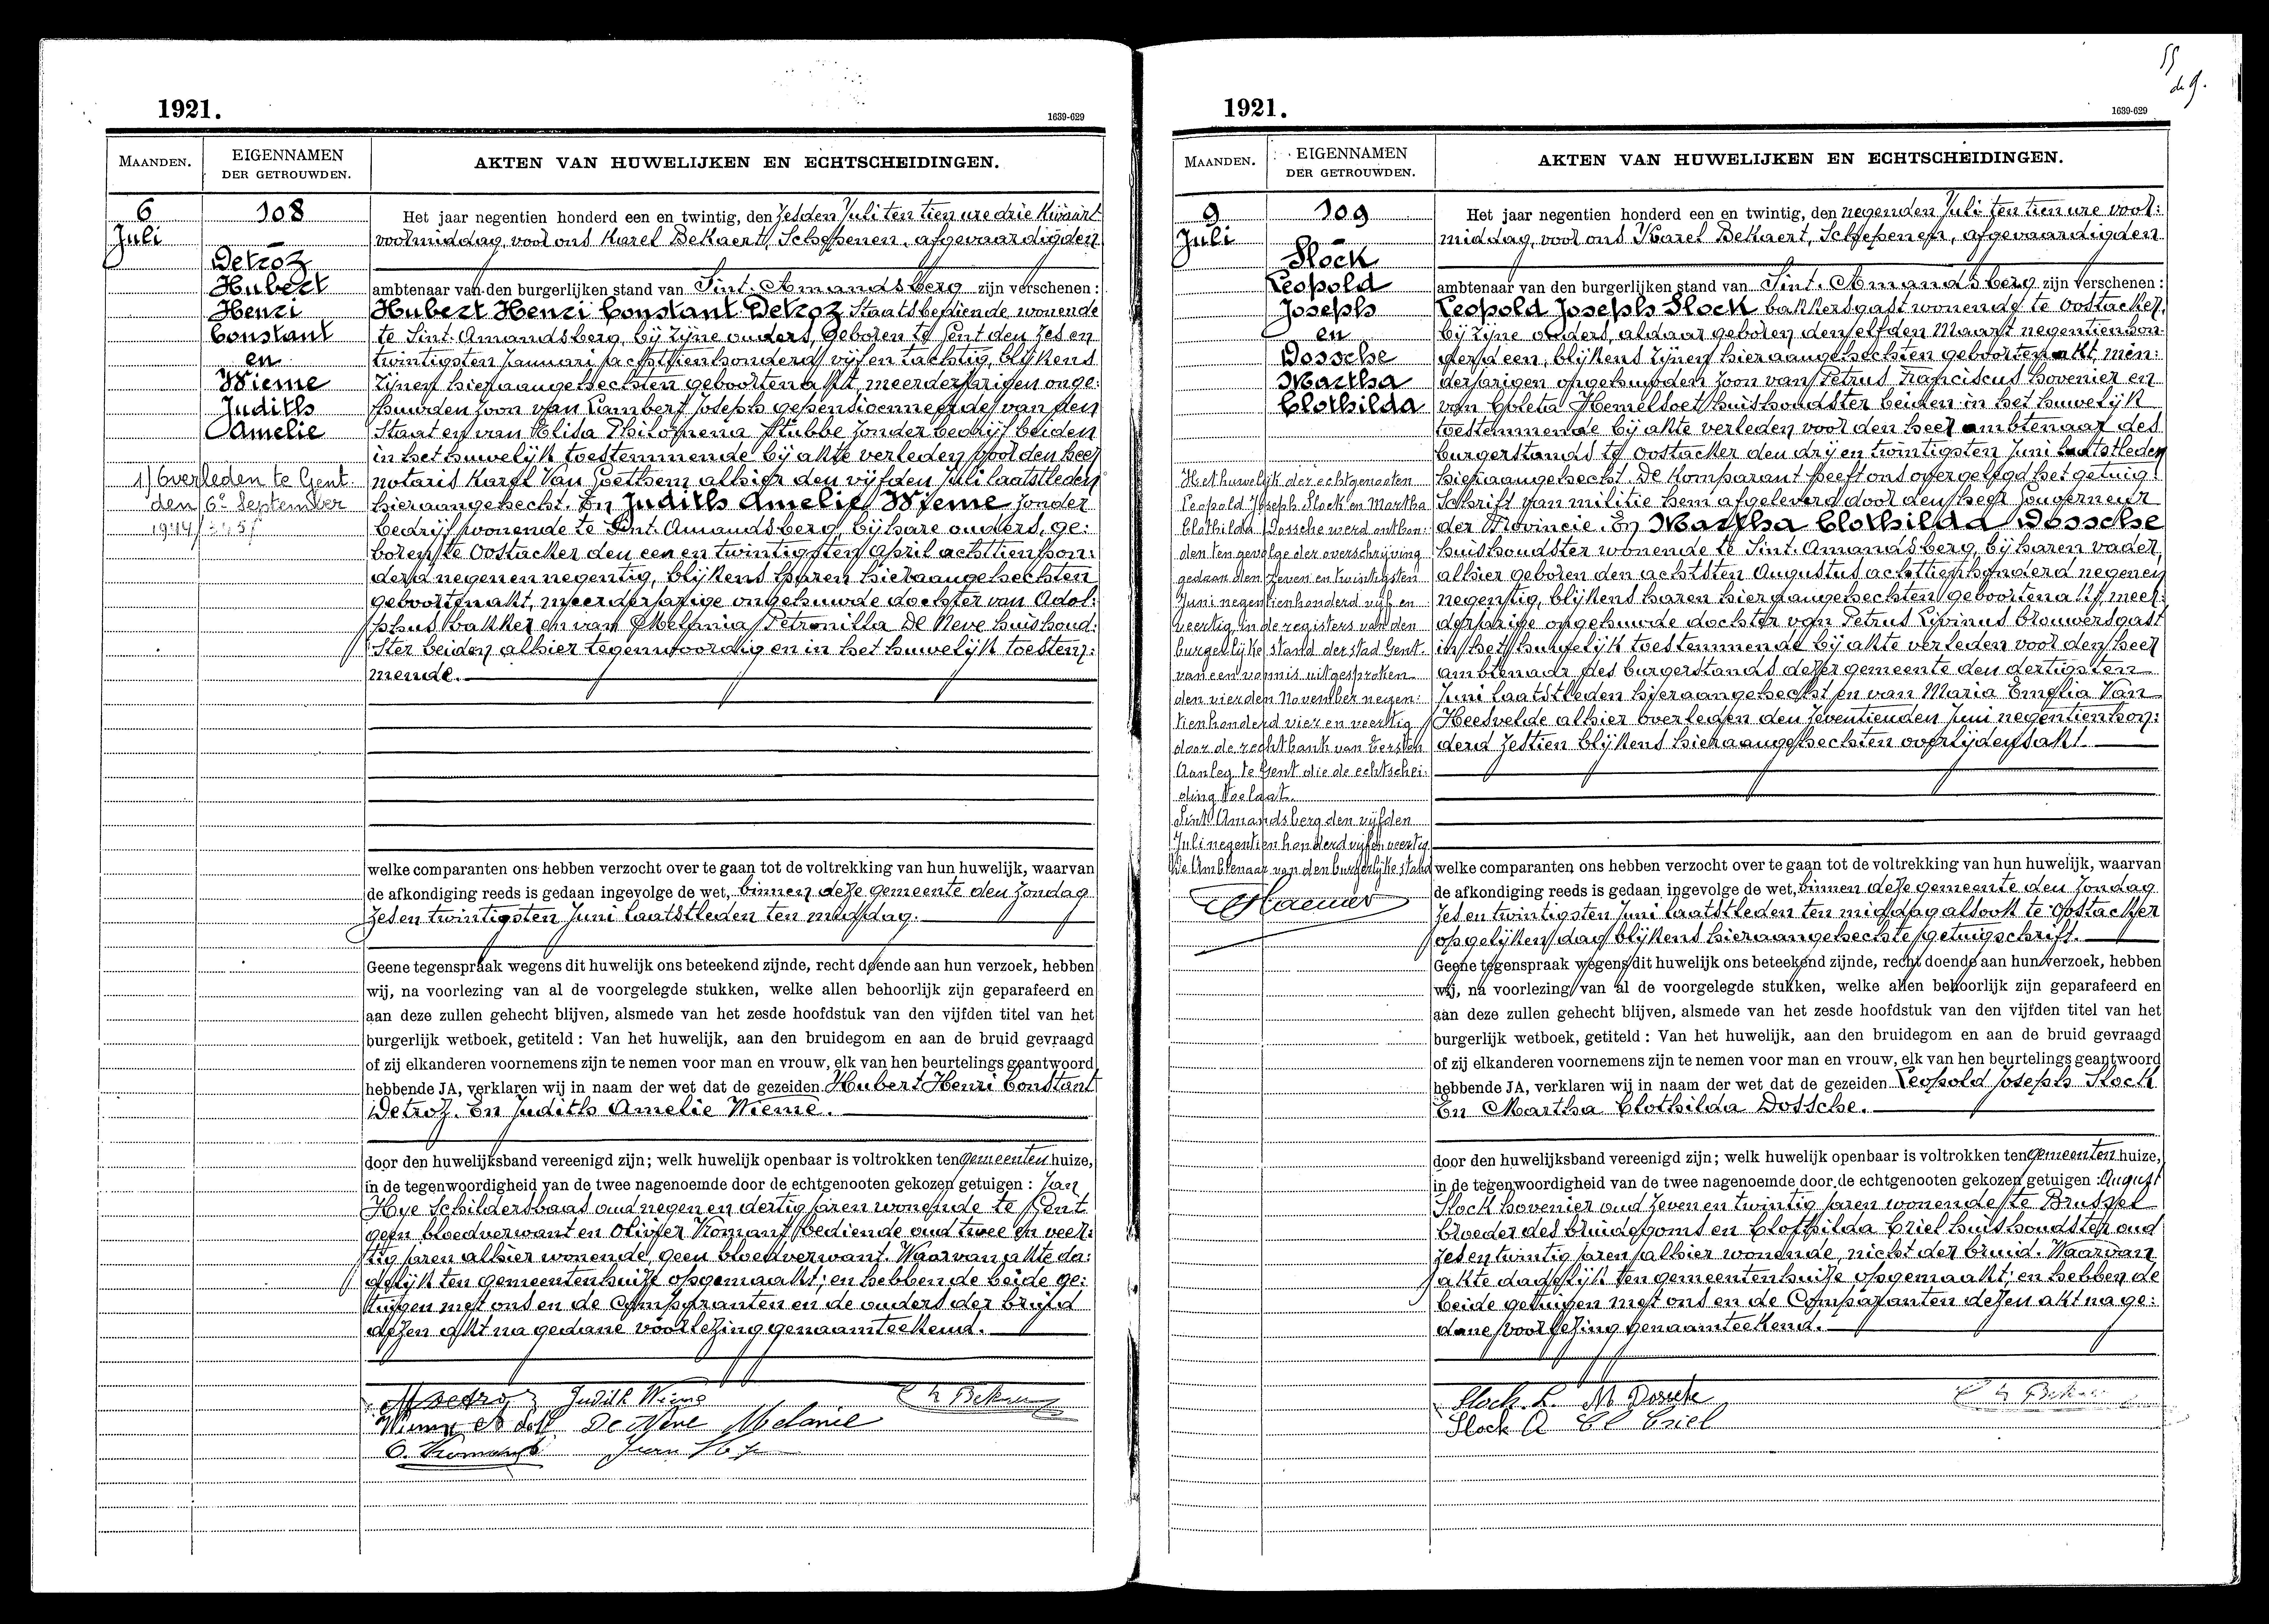 1921.
1639-629
MAANDEN.
EIGENNAMEN
DER GETROUWDEN.
AKTEN VAN HUWELIJKEN EN ECHTSCHEIDINGEN.
6
Juli
108
Detroz
Hubert
Henri
Constant
en
Wieme
Judith
Amelie
1) Overleden te Gent
den 6e September
Het jaar negentien honderd een en twintig, den zesden Juli ten tien ure drie kwaart
voormiddag, voor ons Karel Bekaert, Schepenen, afgevaardigden
ambtenaar van den burgerlijken stand van Sint-Amandsberg zijn verschenen :
Hubert Henri Constant Detroz Staatsbediende wonende
te Sint-Amandsberg, bij zijne ouders, geboren te Gent den zes en
twintigsten Januari achttienhonderd vijf en tachtig, blijkens
zijnen hieraangehechten geboortenakt, meerderjarigen onge:
huwden zoon van Lambert Joseph gepensioenneerde van den
Staat en van Elisa Philomena Stubbe zonder bedrijf beiden
in het huwelijk toestemmende bij akte verleden voor den heer
notaris Karel Van Goethem alhier den vijfden Juli laatstleden
hieraangehecht. En Judith Amelie Wieme zonder
bedrijf wonende te Sint-Amandsberg, bij hare ouders, ge:
boren te Oostacker den een en twintigsten April achttienhon:
derd negen en negentig, blijkens haren hieraangehechten
geboortenakt, meerderjarige ongehuwde dochter van Adol:
phus bakker en van Melania Petronilla De Neve huishoud:
ster beiden alhier tegenwoordig en in het huwelijk toestem:
mende.
welke comparanten ons hebben verzocht over te gaan tot de voltrekking van hun huwelijk, waarvan
de afkondiging reeds is gedaan ingevolge de wet, binnen deze gemeente den zondag
zes en twintigsten Juni laatstleden ten middag.
Geene tegenspraak wegens dit huwelijk ons beteekend zijnde, recht doende aan hun verzoek, hebben
wij, na voorlezing van al de voorgelegde stukken, welke allen behoorlijk zijn geparafeerd en
aan deze zullen gehecht blijven, alsmede van het zesde hoofdstuk van den vijfden titel van het
burgerlijk wetboek, getiteld : Van het huwelijk, aan den bruidegom en aan de bruid gevraagd
of zij elkanderen voornemens zijn te nemen voor man en vrouw, elk van hen beurtelings geantwoord
hebbende JA, verklaren wij in naam der wet dat de gezeiden Hubert Henri Constant
Detroz. En Judith Amelie Wieme.
door den huwelijksband vereenigd zijn; welk huwelijk openbaar is voltrokken ten gemeentenhuize,
in de tegenwoordigheid van de twee nagenoemde door de echtgenooten gekozen getuigen : Jan
Hye Schildersbaas oud negen en dertig jaren wonende te Gent
geen bloedverwant en Olivier Komant bediende oud twee en veer:
tig jaren alhier wonende, geen bloedverwant. Waarvan akte da:
gelijk ten gemeentenhuize opgemaakt; en hebben de beide ge:
tuigen met ons en de Comparanten en de ouders der bruid
dezen akt na gedane voorlezing genaamteekend.
Judith Wieme
De Neve Melanie
1921.
1639-629
55
de 9.
MAANDEN.
EIGENNAMEN
DER GETROUWDEN.
AKTEN VAN HUWELIJKEN EN ECHTSCHEIDINGEN.
9
Juli
109
Slock
Leopold
Joseph
en
Dossche
Martha
Clothilda
Het huwelijk der echtgenooten
Leopold Joseph Slock en Martha
Clothilda Dossche werd ontbon:
den ten gevolge der overschrijving
gedaan den zeven en twintigsten
Juni negentienhonderd vijf en
veertig in de registers van den
burgerlijke stand der stad Gent
van een vonnis uitgesproken
den vierden November negen:
tienhonderd vier en veertig
door de rechtbank van Eersten
Aanleg te Gent die de echtschei:
ding toelaat.
Sint Amandsberg den vijfden
Juli negentienhonderd vijf en veertig
De Ambtenaar van den burgerlijke stand
Het jaar negentien honderd een en twintig, den negenden Juli ten tien ure voor:
middag, voor ons Karel Bekaert, Schepenen, afgevaardigden
ambtenaar van den burgerlijken stand van Sint-Amandsberg zijn verschenen :
Leopold Joseph Slock bakkersgast wonende te Oostacker,
bij zijne ouders, aldaar geboren den elfden Maart negentienhon:
derd een, blijkens zijnen hieraangehechten geboortenakt, min:
derjarigen ongehuwden zoon van Petrus Franciscus hovenier en
van Coleta Hemelsoet huishoudster beiden in het huwelijk
toestemmende bij akte verleden voor den heer ambtenaar des
burgerstands te Oostacker den drij en twintigsten Juni laatstleden
hieraangehecht. De Komparant heeft ons overgelegd het getuig:
schrift van militie hem afgeleverd door den heer Gouverneur
der Provincie. En Martha Clothilda Dossche
huishoudster wonende te Sint-Amandsberg, bij haren vader,
alhier geboren den achtsten Augustus achttienhonderd negen en
negentig, blijkens haren hieraangehechten geboortenakt, meer:
derjarige ongehuwde dochter van Petrus Livinus brouwersgast
in het huwelijk toestemmende bij akte verleden voor den heer
ambtenaar des burgerstands dezer gemeente den dertigsten
Juni laatstleden hieraangehecht en van Maria Emelia Van
Heesvelde alhier overleden den zeventienden Juni negentienhon:
derd zestien blijkens hieraangehechten overlijdensakt.
welke comparanten ons hebben verzocht over te gaan tot de voltrekking van hun huwelijk, waarvan
de afkondiging reeds is gedaan ingevolge de wet, binnen deze gemeente den zondag
zes en twintigsten Juni laatstleden ten middag alsook te Oostacker
op gelijken dag blijkens hieraangehechte getuigschrift.
Geene tegenspraak wegens dit huwelijk ons beteekend zijnde, recht doende aan hun verzoek, hebben
wij, na voorlezing van al de voorgelegde stukken, welke allen behoorlijk zijn geparafeerd en
aan deze zullen gehecht blijven, alsmede van het zesde hoofdstuk van den vijfden titel van het
burgerlijk wetboek, getiteld : Van het huwelijk, aan den bruidegom en aan de bruid gevraagd
of zij elkanderen voornemens zijn te nemen voor man en vrouw, elk van hen beurtelings geantwoord
hebbende JA, verklaren wij in naam der wet dat de gezeiden Leopold Joseph Slock
En Martha Clothilda Dossche.
door den huwelijksband vereenigd zijn; welk huwelijk openbaar is voltrokken ten gemeentenhuize,
in de tegenwoordigheid van de twee nagenoemde door de echtgenooten gekozen getuigen : August
Slock hovenier oud zeven en twintig jaren wonende te Brussel
broeder des bruidegoms en Clothilda Criel huishoudster oud
zes en twintig jaren alhier wonende, nicht der bruid. Waarvan
akte dagelijk ten gemeentenhuize opgemaakt; en hebben de
beide getuigen met ons en de Comparanten dezen akt na ge:
dane voorlezing genaamteekend.
Slock L. M. Dossche
Slock A Cl Criel